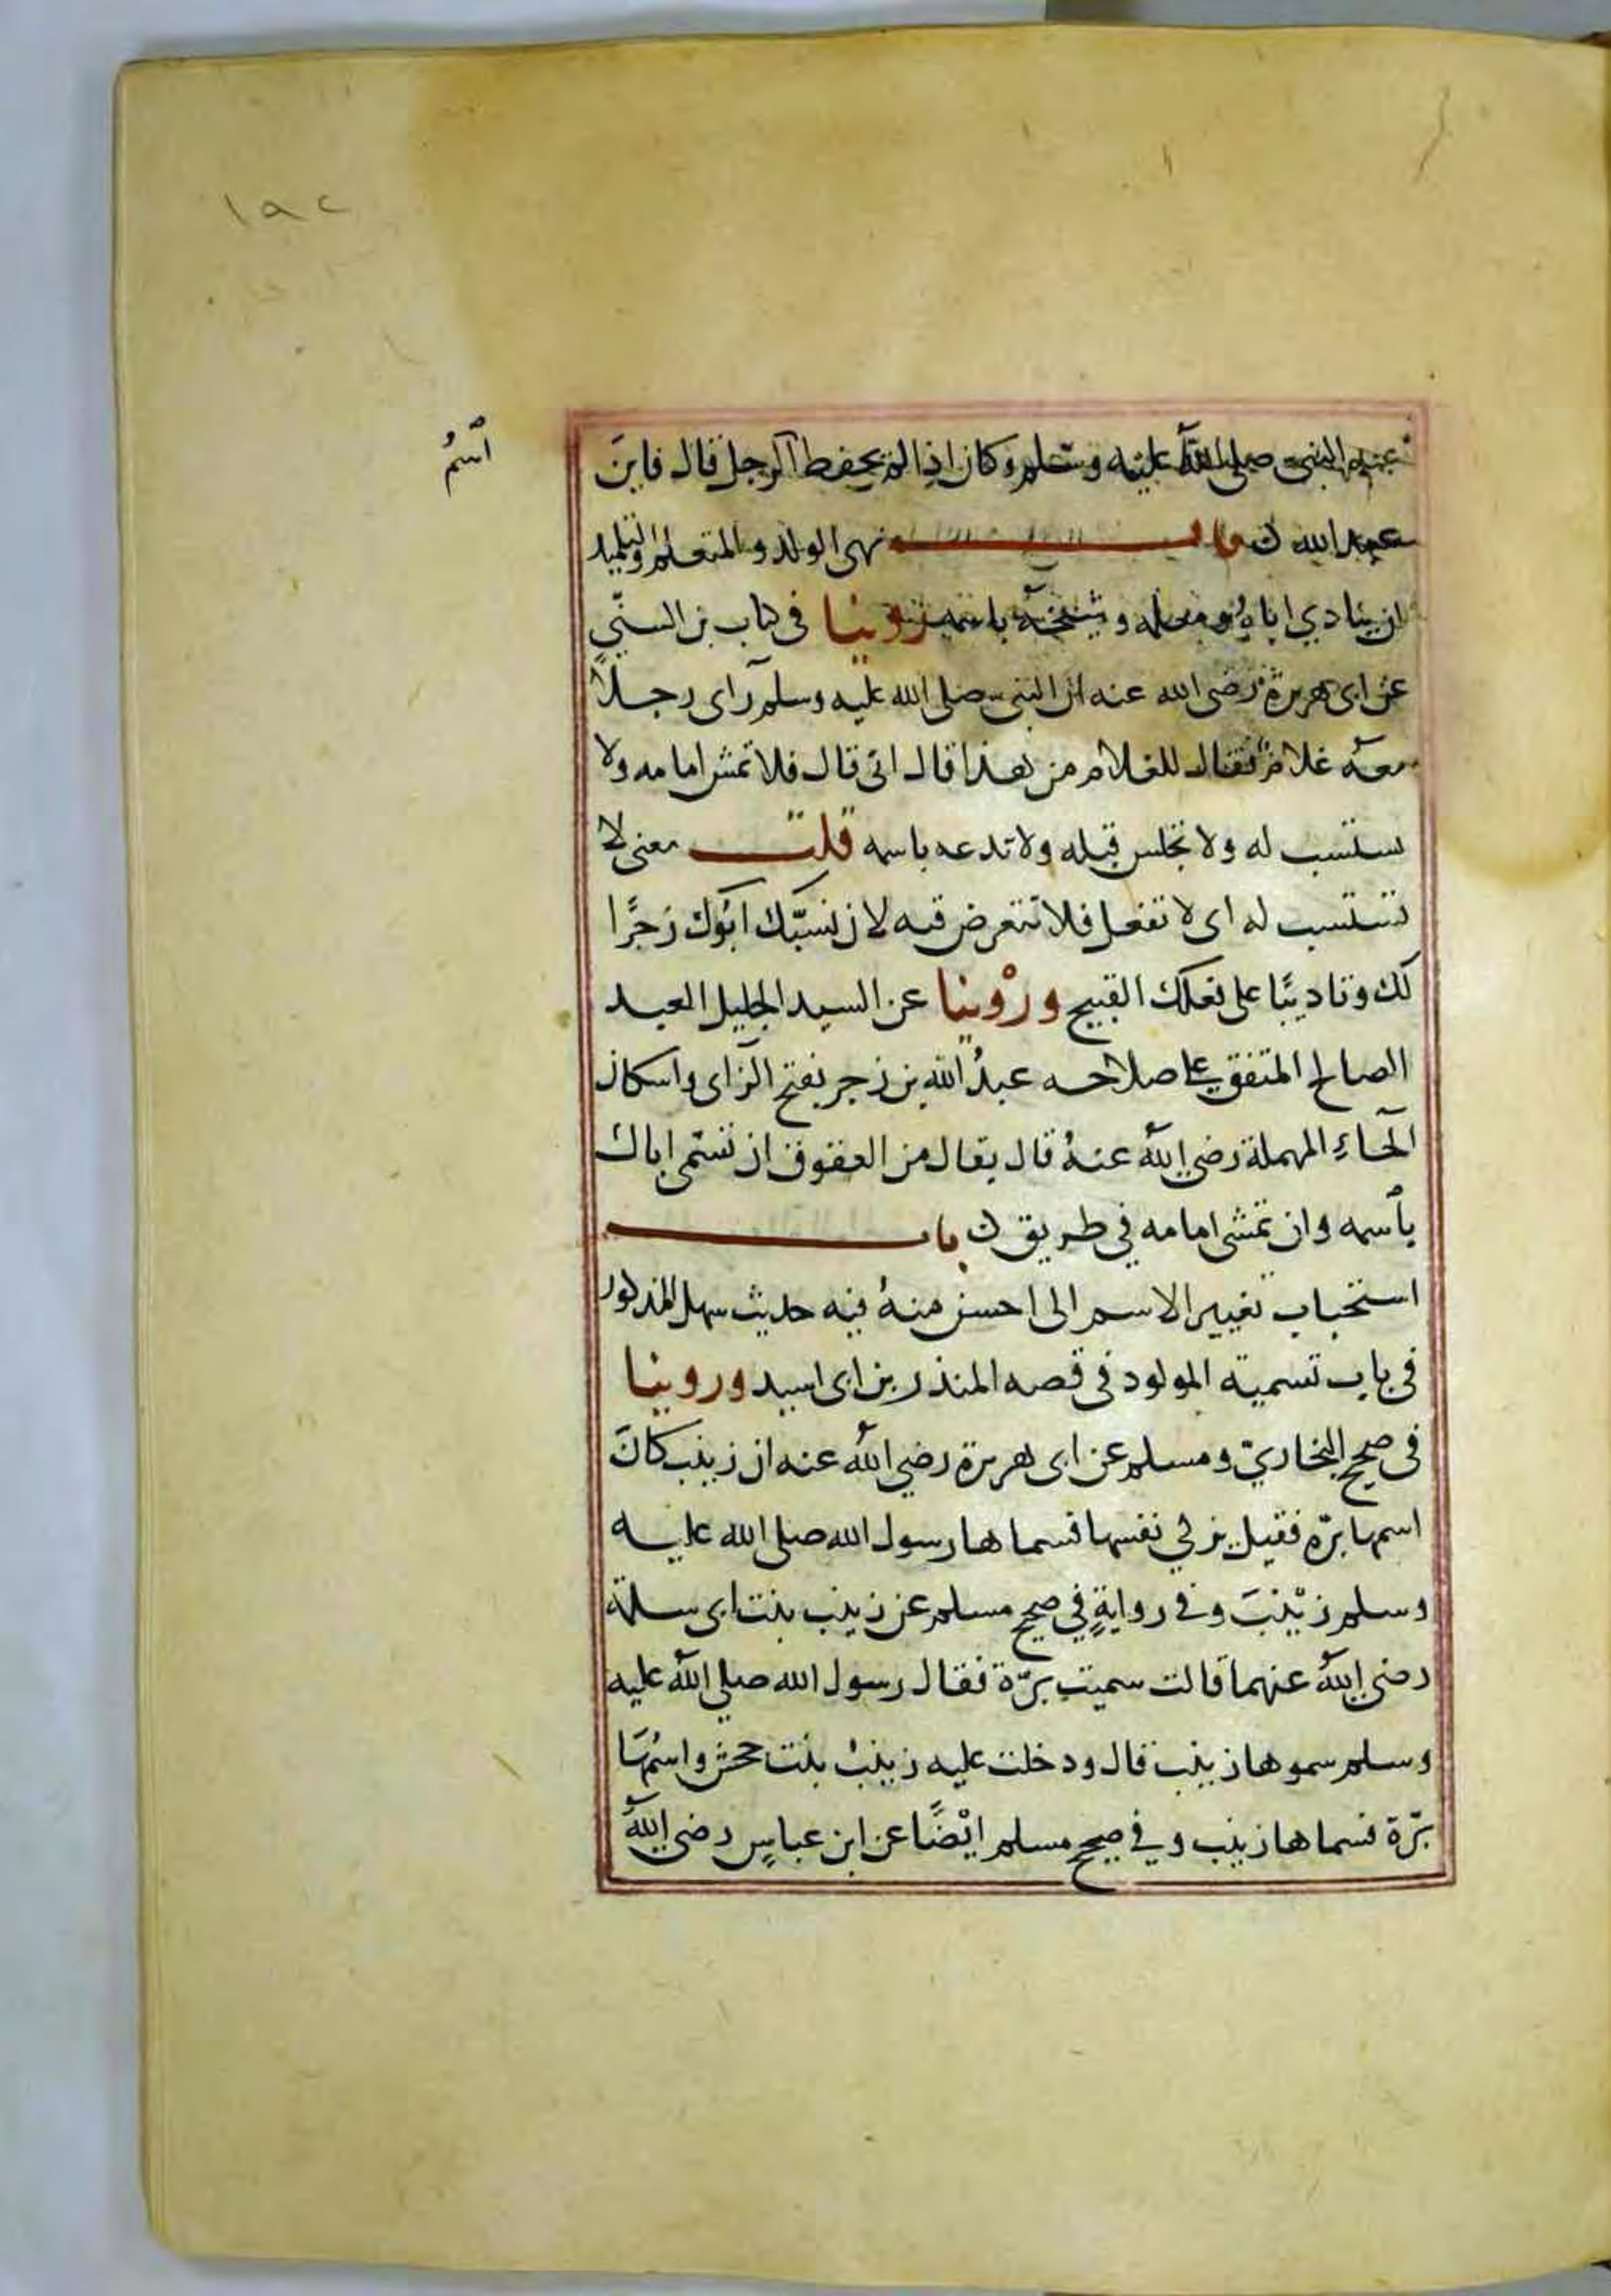 ١٩٢
اسمُ
عند النبى صلى الله عليه وسلم وكان اذا لم يحفظ الرجل قال يا ابنَ
عبد الله ن باب نهى الولد والمتعلم والتلميد
ان ينادي اباه ومعلمه وشيخه باسمه روينا فى كتاب بن السنّي
عن ابى هريرة رضى الله عنه ان النبى صلى الله عليه وسلم رآى رجلاً
معه غلام فقال للغلام من هذا قال ابى قال فلا تمش امامه ولا
تستسب له ولا تجلس قبله ولا تدعه باسمه قلت معنى لا
تستسب له اى لا تفعل فلا تتعرض فيه لان يسبّك ابوك زجرًا
لك وتاديبًا على فعلك القبيح وروينا عن السيد الجليل العبد
الصالح المتفق على صلاحه عبدُ الله بن زجر بفتح الزاى واسكان
الحاءِ المهملة رضى الله عنهُ قال يقال من العقوق ان تسمّى اباك
باسمه وان تمشى امامه في طريق ن باب
استحباب تغيير الاسم الى احسن منهُ فيه حديث سهل المذكور
فى باب تسمية المولود فى قصه المنذر بن ابى اسيد وروينا
فى صحيح البخاريّ ومسلم عن ابى هريرة رضي الله عنه ان زينب كانَ
اسمها برّه فقيل تزكي نفسها فسماها رسول الله صلى الله عليه
وسلم زيْنبَ وفى روايةٍ في صحيح مسلم عن زينب بنت ابى سلمة
رضى الله عنهما قالت سميت برّة فقال رسول الله صلى الله عليه
وسلم سموها زينب قال ودخلت عليه زينبُ بنت جحش واسْمُهَا
برّة فسماها زينب وفي صحيح مسلم ايْضًا عن ابن عباسٍ رضى الله